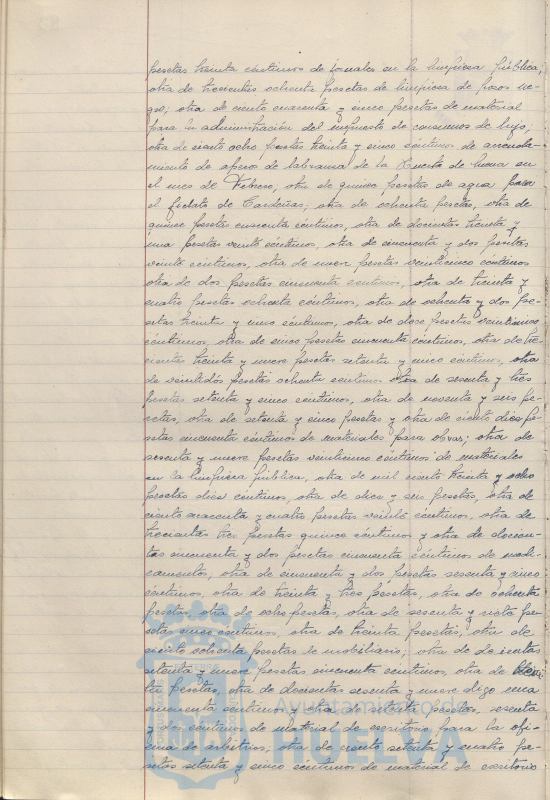 pesetas treinta céntimos de jornales en la limpieza pública;
otra de trescientas ochenta pesetas de limpieza de pozos ne-
gros; otra de ciento cuarenta y cinco pesetas de material
para la administración del impuesto de consumos de lujo,
otra de ciento ocho pesetas treinta y cinco céntimos de arrenda-
miento de apero de labranza de la Huerta de mena en
el mes de Febrero, otra de quince pesetas de agua para
el fielato de Cardeñas; otra de ochenta pesetas, otra de
quince pesetas cincuenta céntimos, otra de doscientas treinta y
una pesetas veinte céntimos, otra de cincuenta y dos pesetas
veinte céntimos, otra de nueve pesetas veinticinco céntimos
otra de dos pesetas cincuenta céntimos, otra de treinta y
cuatro pesetas ochenta céntimos, otra de ochenta y dos pe-
setas treinta y cinco céntimos, otra de doce pesetas veinticinco
céntimos, otra de cinco pesetas cincuenta céntimos, otra de tres-
cientas treinta y nueve pesetas setenta y cinco céntimos, otra
de veintidós pesetas ochenta céntimos otra de sesenta y tres
pesetas setenta y cinco céntimos, otra de noventa y seis pe-
setas, otra de setenta y cinco pesetas y otra de ciento diez pe-
setas cincuenta céntimos de materiales para obras; otra de
sesenta y nueve pesetas veinticinco céntimos de materiales
en la limpieza pública, otra de mil ciento treinta y ocho
pesetas diez céntimos, otra de diez y seis pesetas, otra de
ciento cuarenta y cuatro pesetas veinte céntimos, otra de
trescientas tres pesetas quince céntimos y otra de doscien-
tas cincuenta y dos pesetas cincuenta céntimos de medi-
camentos, otra de cincuenta y dos pesetas sesenta y cinco
céntimos, otra de treinta y tres pesetas, otra de ochenta
pesetas, otra de ocho pesetas, otra de sesenta y siete pe-
setas cinco céntimos, otra de treinta pesetas, otra de
ciento ochenta pesetas de mobiliario; otra de doscientas
setenta y nueve pesetas cincuenta céntimos, otra de
pesetas, otra de doscientas sesenta y nueve digo una
cincuenta céntimos y otra de setenta pesetas, sesenta
y dos céntimos de material de escritorio para la ofi-
cina de arbitrios, otra de ciento setenta y cuatro pe-
setas setenta y cinco céntimos de material de escritorio
Ayuntamiento de
HUELVA